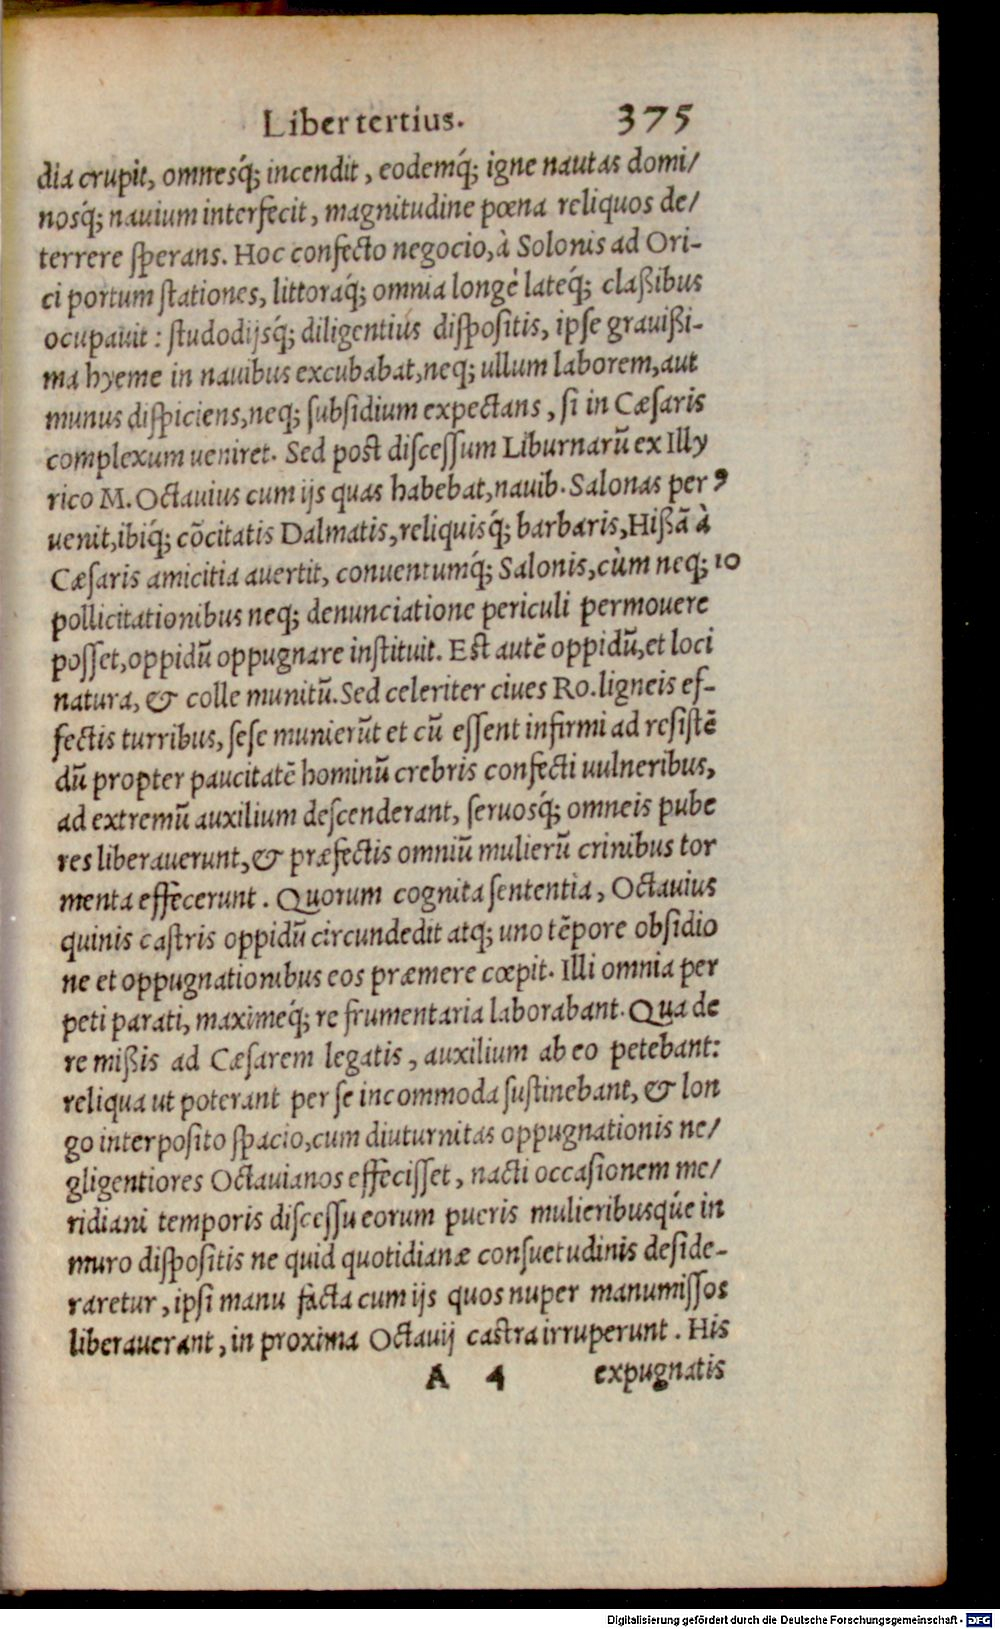 Liber tertius. 375
dia erupit, omnesq́; incendit, eodemq́; igne nautas domi/
nosq́; nauium interfecit, magnitudine pœna reliquos de/
terrere sperans. Hoc confecto negocio, à Solonis ad Ori-
ci portum stationes, littoraq́; omnia longè lateq́; claßibus
ocupauit: studodijsq́; diligentius dispositis, ipse grauißi-
ma hyeme in nauibus excubabat, neq; ullum laborem, aut
munus dispiciens, neq; subsidium expectans, si in Cæsaris
complexum ueniret. Sed post discessum Liburnarũ ex Illy
rico M. Octauius cum ijs quas habebat, nauib. Salonas per 9
uenit, ibiq́; cõcitatis Dalmatis, reliquisq́; barbaris, Hißã à
Cæsaris amicitia auertit, conuentumq́; Salonis, cùm neq; 10
pollicitationibus neq; denunciatione periculi permouere
posset, oppidũ oppugnare instituit. Est autẽ oppidũ, et loci
natura, & colle munitũ. Sed celeriter ciues Ro. ligneis ef-
fectis turribus, sese munierũt et cũ essent infirmi ad resistẽ
dũ propter paucitatẽ hominũ crebris confecti uulneribus,
ad extremũ auxilium descenderant, seruosq́; omneis pube
res liberauerunt, & præfectis omniũ mulierũ crinibus tor
menta effecerunt. Quorum cognita sententia, Octauius
quinis castris oppidũ circundedit atq; uno tẽpore obsidio
ne et oppugnationibus eos præmere cœpit. Illi omnia per
peti parati, maximeq́; re frumentaria laborabant. Qua de
re mißis ad Cæsarem legatis, auxilium ab eo petebant:
reliqua ut poterant per se incommoda sustinebant, & lon
go interposito spacio, cum diuturnitas oppugnationis ne/
gligentiores Octauianos effecisset, nacti occasionem me/
ridiani temporis discessu eorum pueris mulieribusqúe in
muro dispositis ne quid quotidianæ consuetudinis deside-
raretur, ipsi manu facta cum ijs quos nuper manumissos
liberauerant, in proxima Octauij castra irruperunt. His
A 4 expugnatis
Digitalisierung gefördert durch die Deutsche Forschungsgemeinschaft - DFG